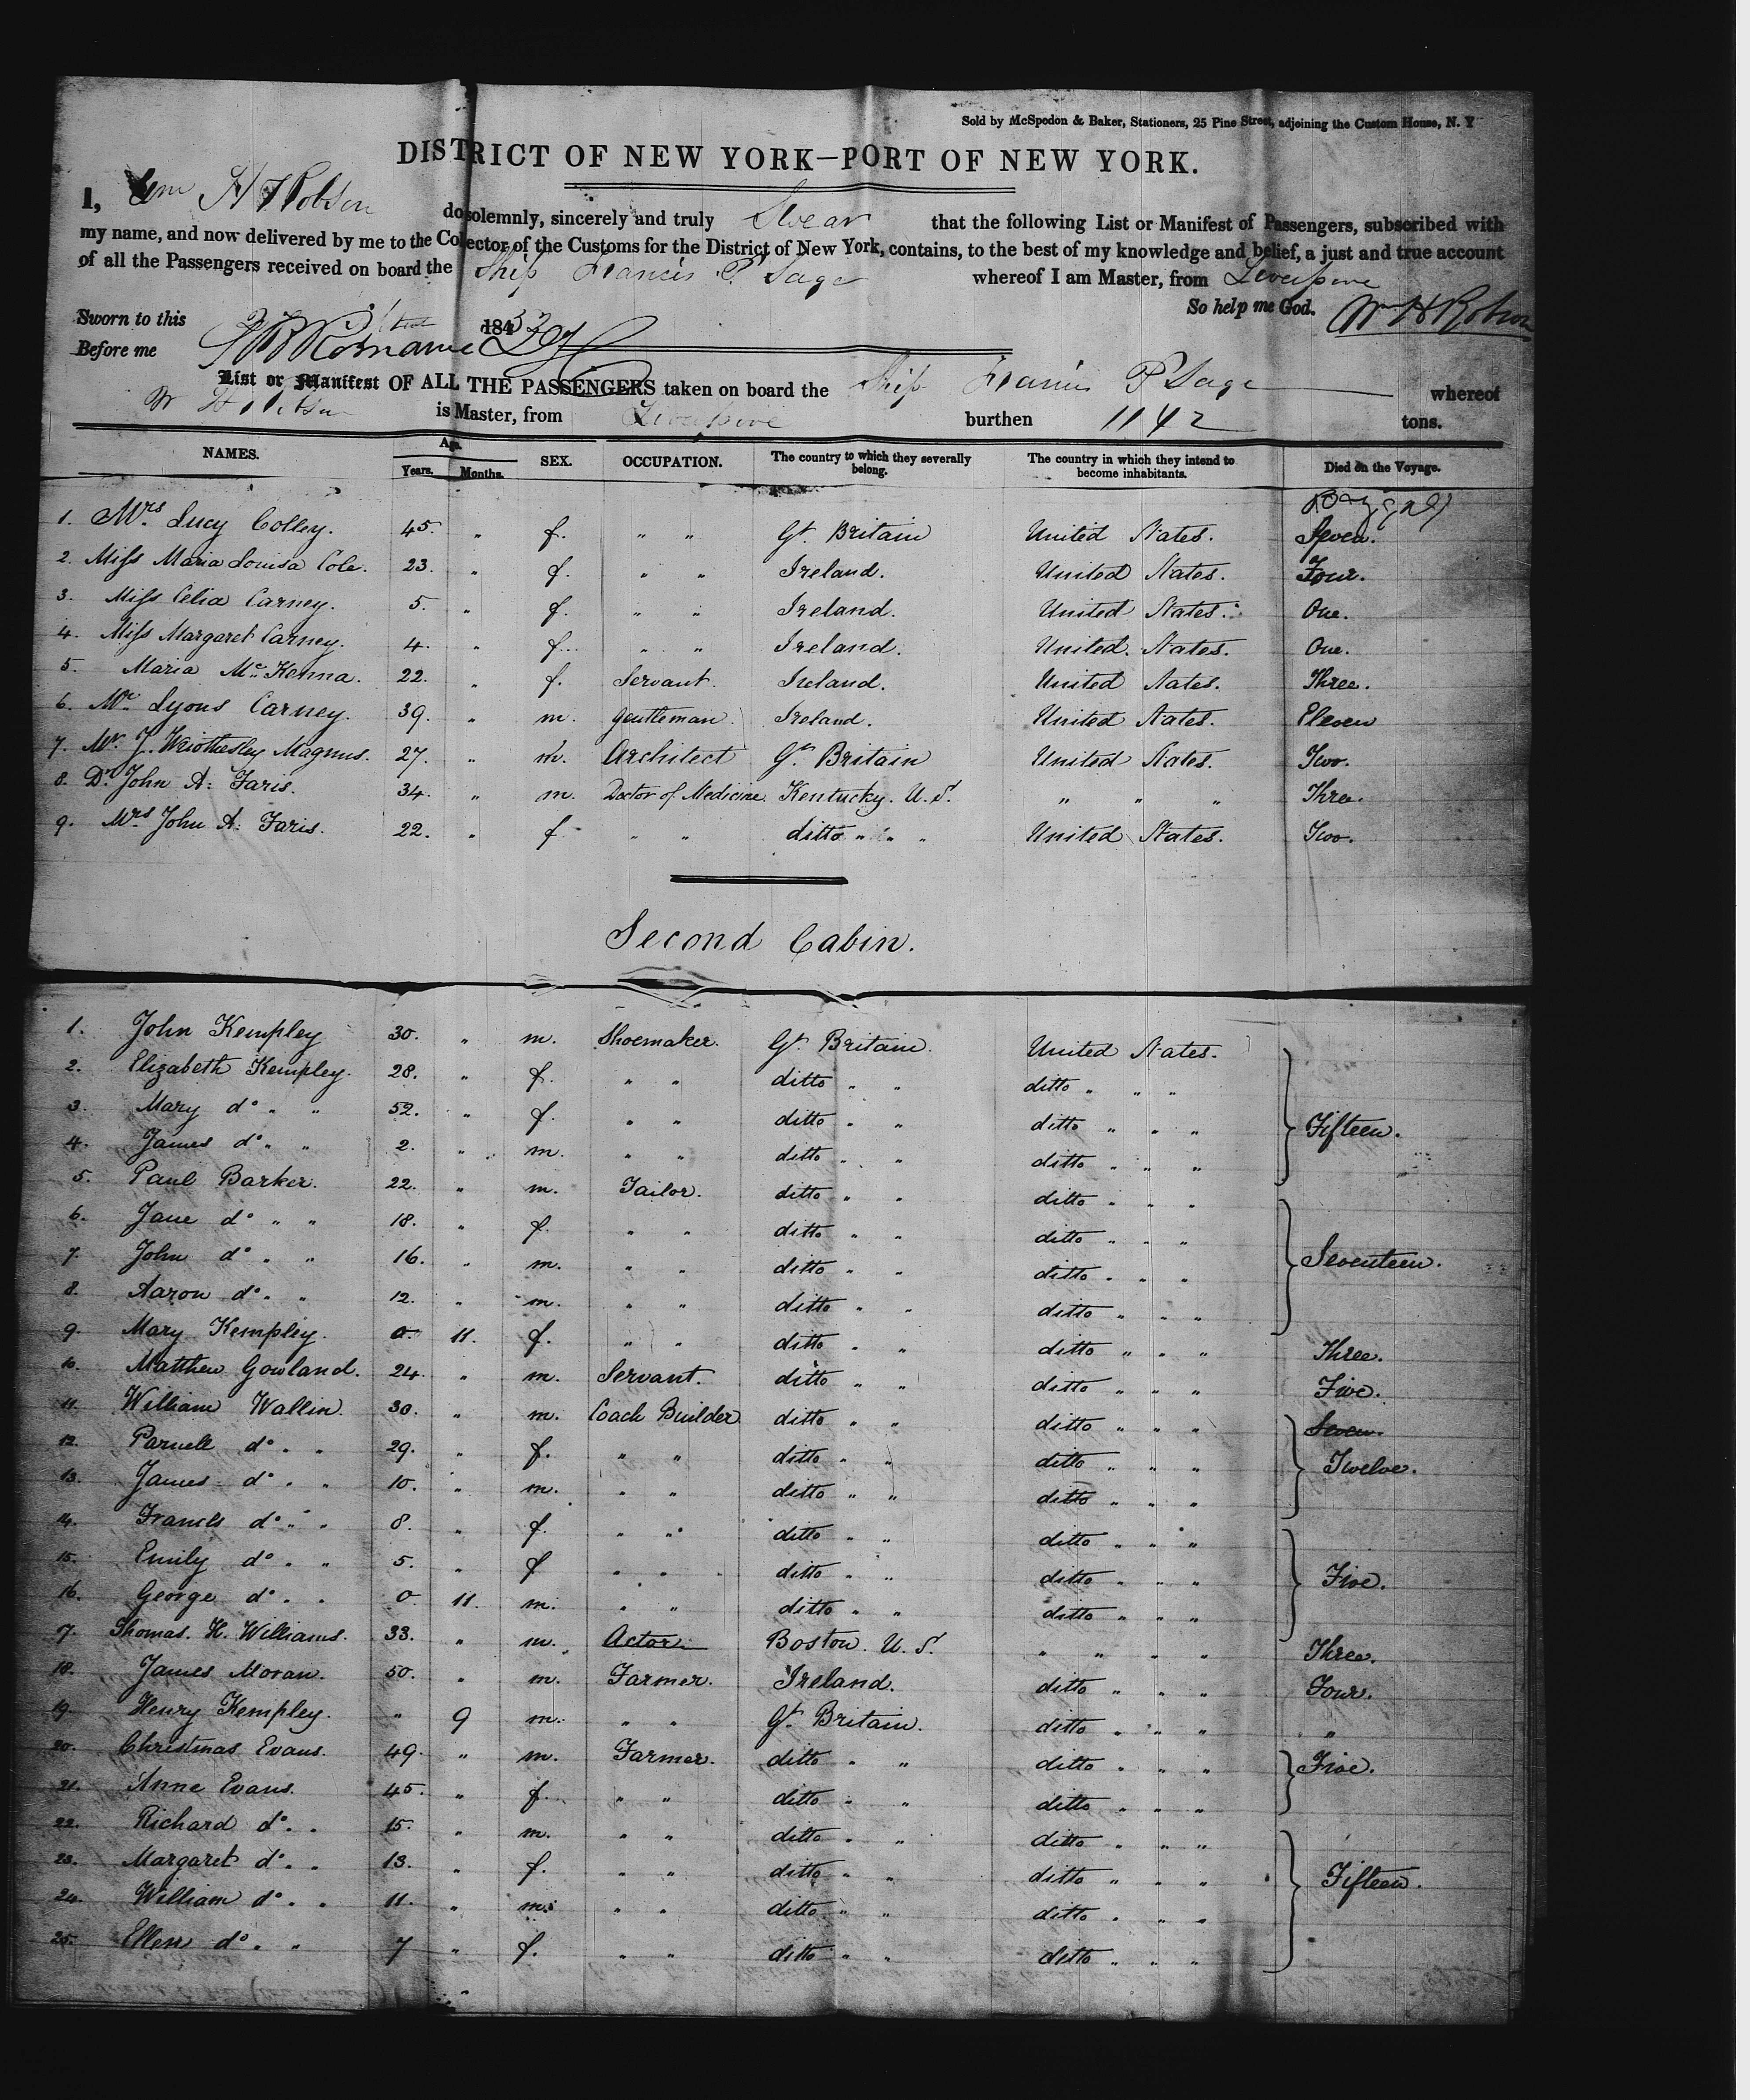 Sold by McSpedon & Baker, Stationers, 25 Pine Street, adjoining the Custom House, N. Y
DISTRICT OF NEW YORK—PORT OF NEW YORK.
I, Wm H Robson do solemnly, sincerely and truly Swear that the following List or Manifest of Passengers, subscribed with
my name, and now delivered by me to the Collector of the Customs for the District of New York, contains, to the best of my knowledge and belief, a just and true account
of all the Passengers received on board the Ship Francis P. Sage whereof I am Master, from Liverpool
So help me God. Wm H Robson
Sworn to this 184
Before me
List or Manifest OF ALL THE PASSENGERS taken on board the Ship Francis P Sage whereof
W H Robson is Master, from Liverpool burthen 1142 tons.
NAMES. Age. Years. Months. SEX. OCCUPATION. The country to which they severally belong. The country in which they intend to become inhabitants. Died on the Voyage.
1. Mrs Lucy Colley. 45. " f. " " Gt. Britain United States. Seven.
2. Miss Maria Louisa Cole. 23. " f. " " Ireland. United States. Four.
3. Miss Celia Carney. 5. " f. " " Ireland. United States. One.
4. Miss Margaret Carney. 4. " f. " " Ireland. United States. One.
5. Maria McKenna. 22. " f. Servant. Ireland. United States. Three.
6. Mr. Lyons Carney. 39. " m. Gentleman. Ireland. United States. Eleven
7. Mr. J. Wriothesley Magnus. 27. " m. Architect Gt. Britain United States. Two.
8. Dr. John A. Faris. 34. " m. Doctor of Medicine. Kentucky. U.S. " " " Three.
9. Mrs John A. Faris. 22. " f. " " ditto " " " United States. Two.
Second Cabin.
1. John Kempley 30. " m. Shoemaker. Gt. Britain. United States.
2. Elizabeth Kempley. 28. " f. " " ditto " " ditto " " "
3. Mary do " " 52. " f. " " ditto " " ditto " " " Fifteen.
4. James do " " 2. " m. " " ditto " " ditto " " "
5. Paul Barker. 22. " m. Tailor. ditto " " ditto " " "
6. Jane do " " 18. " f. " " ditto " " ditto " " "
7. John do " " 16. " m. " " ditto " " ditto " " " Seventeen.
8. Aaron do " " 12. " m. " " ditto " " ditto " " "
9. Mary Kempley. 0. 11. f. " " ditto " " ditto " " " Three.
10. Matthew Gowland. 24. " m. Servant. ditto " " ditto " " " Five.
11. William Wallin. 30. " m. Coach Builder ditto " " ditto " " " Seven.
12. Parnell do " " 29. " f. " " ditto " " ditto " " " Twelve.
13. James do " " 10. " m. " " ditto " " ditto " " "
14. Francis do " " 8. " f. " " ditto " " ditto " " "
15. Emily do " " 5. " f " " ditto " " ditto " " " Five.
16. George do " " 0 11. m. " " ditto " " ditto " " "
17. Thomas. H. Williams. 33. " m. Actor. Boston. U.S. " " " " Three.
18. James Moran. 50. " m. Farmer. Ireland. ditto " " " Four.
19. Henry Kempley. " 9 m. " " Gt. Britain. ditto " " " "
20. Christmas Evans. 49. " m. Farmer. ditto " " ditto " " " Five.
21. Anne Evans. 45. " f. " " ditto " " ditto " " "
22. Richard do " " 15. " m. " " ditto " " ditto " " "
23. Margaret do " " 13. " f. " " ditto " " ditto " " " Fifteen.
24. William do " " 11. " m. " " ditto " " ditto " " "
25. Ellen do " " 7 " f. " " ditto " " ditto " " "